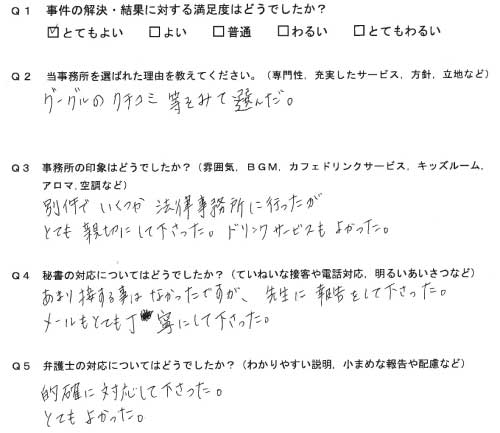 Ｑ１ 事件の解決・結果に対する満足度はどうでしたか？
☑とてもよい □よい □普通 □わるい □とてもわるい
Ｑ２ 当事務所を選ばれた理由を教えてください。（専門性，充実したサービス，方針，立地など）
グーグルの クチコミ 等をみて 選んだ。
Ｑ３ 事務所の印象はどうでしたか？（雰囲気，ＢＧＭ，カフェドリンクサービス，キッズルーム，
アロマ，空調など）
別件で いくつか 法律事務所に行ったが
とても 親切にして下さった。ドリンクサービスもよかった。
Ｑ４ 秘書の対応についてはどうでしたか？（ていねいな接客や電話対応，明るいあいさつなど）
あまり接する事は なかったですが、先生に 報告をして下さった。
メールもとても丁寧にして下さった。
Ｑ５ 弁護士の対応についてはどうでしたか？（わかりやすい説明，小まめな報告や配慮など）
的確に対応して下さった。
とてもよかった。